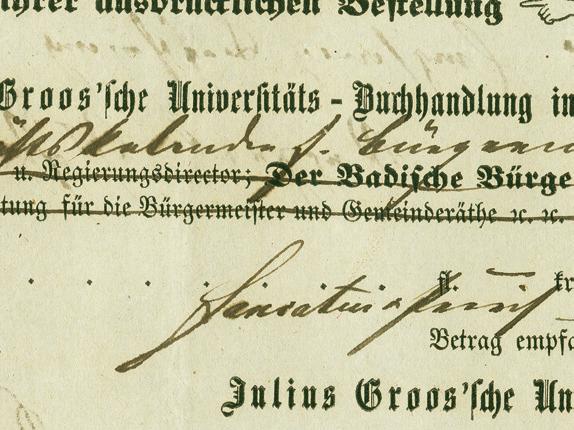 ihrer ausdrücklichen Bestellung
Groos'sche Universitäts-Buchhandlung in
kalender f. Bürgerm
u. Regierungsdirector; Der Badische Bürge
tung für die Bürgermeister und Gemeinderäthe ꝛc. ꝛc.
fl. kr
Betrag empfa
Julius Groos'sche Un